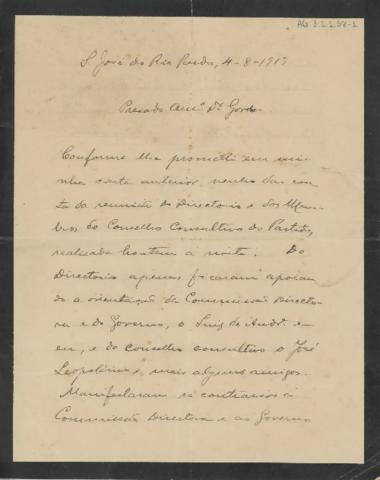 AG 3.2.2.54-1
S. José do Rio Pardo, 4-8-1913
Prezado Amº Dr Gordo
Conforme lhe prometti em mi-
nha carta anterior, venho dar con-
ta da reunião do Directorio e dos Mem-
bros do Conselho Consultivo do Partido,
realizada hontem á noite. Do
Directorio apenas ficaram apoian-
do a orientação da Commissão Directo-
ra e do Governo, o Luiz de Andr. e
eu, e do Conselho consultivo o José
Leopoldino e mais alguns amigos.
Manifestaram-se contrarios á
Commissão Directora e ao Governo